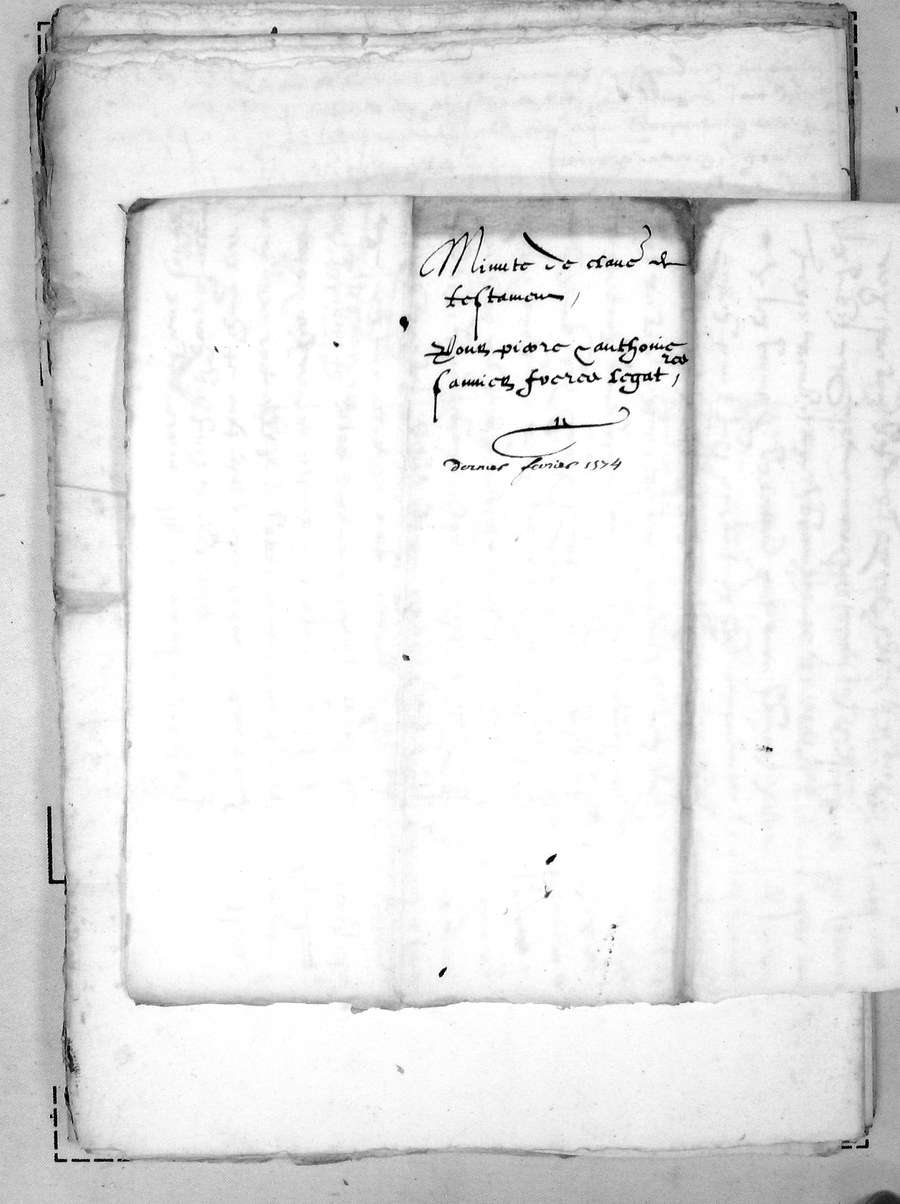 Minutte de clause de
testament,
Pour pierre & anthoine
fannier freres legat res,
dernier febvrier 1574